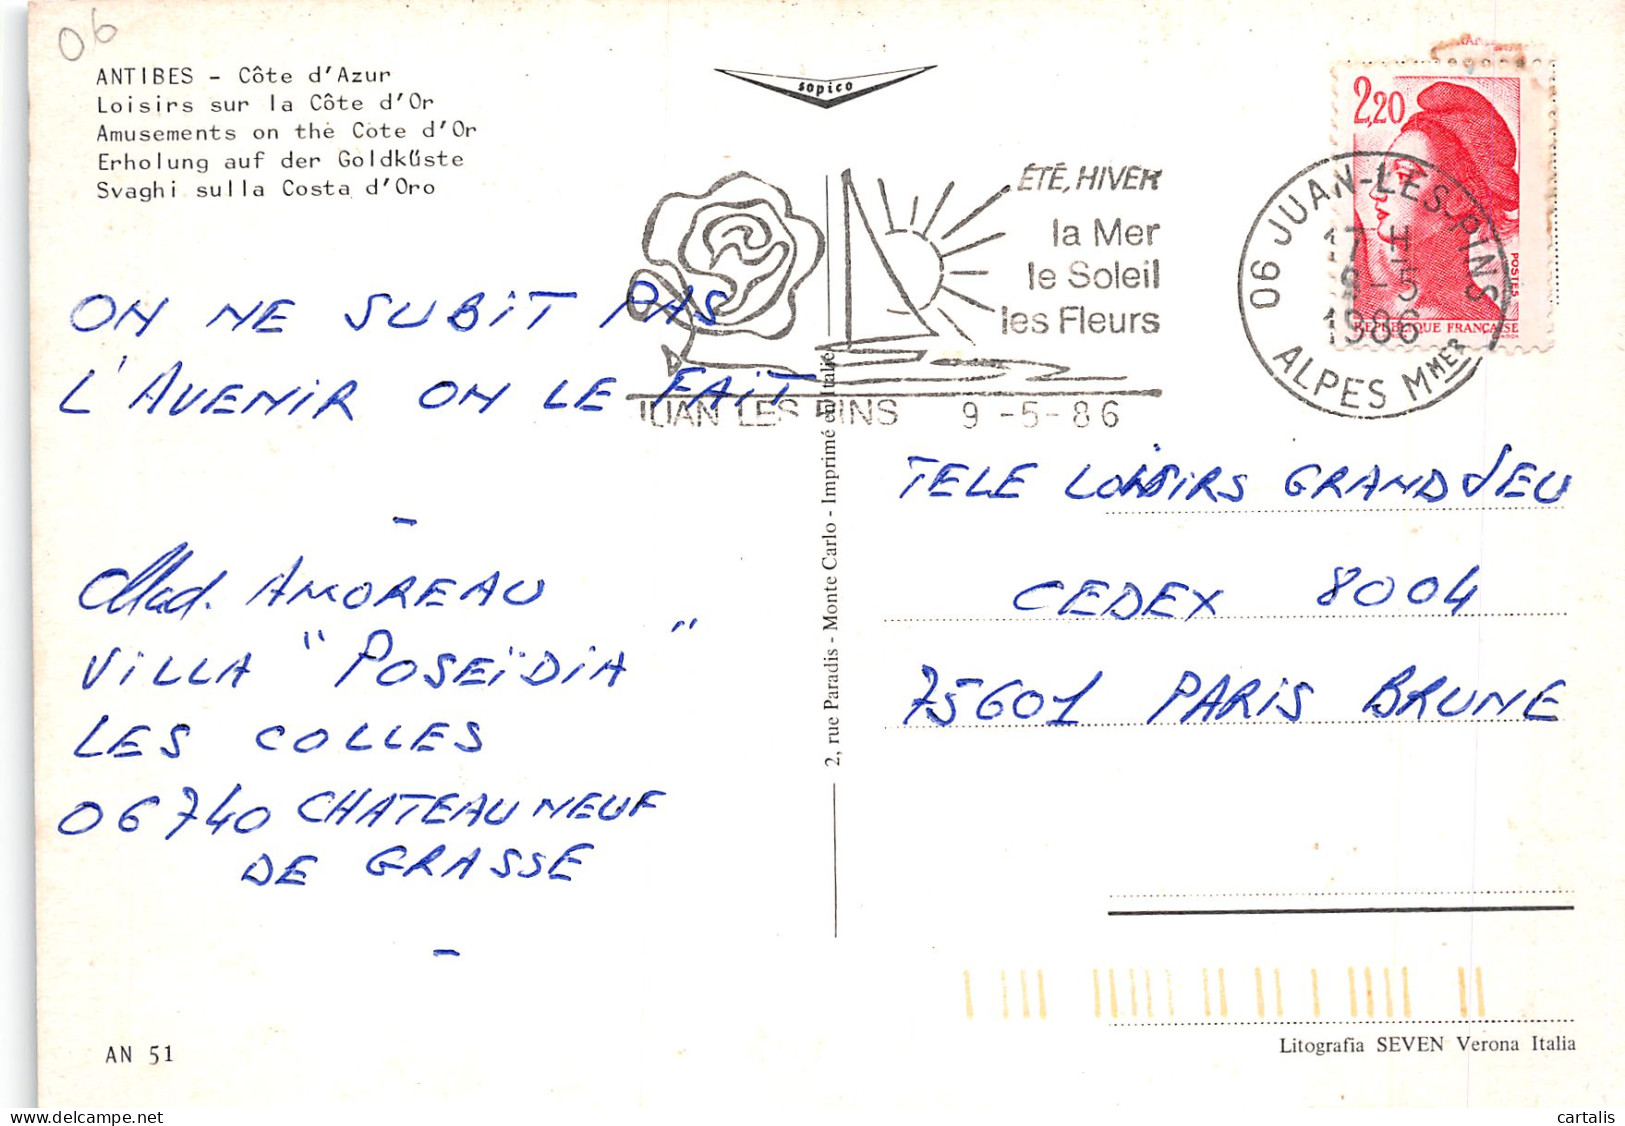 06
ANTIBES - Côte d'Azur
Loisirs sur la Côte d'Or
Amusements on the Cote d'Or
Erholung auf der Goldküste
Svaghi sulla Costa d'Oro
sopico
ÉTÉ, HIVER
la Mer
le Soleil
les Fleurs
JUAN LES PINS 9-5-86
2,20
POSTES
REPUBLIQUE FRANÇAISE
06 JUAN-LES-PINS
17 H
9-5
1986
ALPES MMER
ON NE SUBIT PAS
L'AVENIR ON LE FAIT
-
Mad. AMOREAU
VILLA "POSEÏDIA"
LES COLLES
06740 CHATEAUNEUF
DE GRASSE
-
2, rue Paradis - Monte Carlo - Imprimé en Italie
TELE LOISIRS GRAND JEU
CEDEX 8004
75601 PARIS BRUNE
AN 51
Litografia SEVEN Verona Italia
cartalis